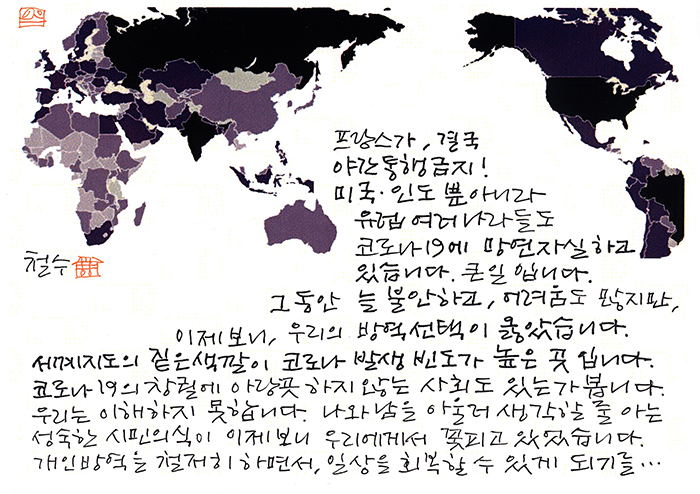 프랑스가, 결국
야간통행금지!
미국·인도 뿐아니라
유럽 여러나라들도
코로나19에 망연자실하고
있습니다. 큰일 입니다.
철수
그동안 늘 불안하고, 어려움도 많지만,
이제보니, 우리의 방역선택이 옳았습니다.
세계지도의 짙은색깔이 코로나 발생 빈도가 높은 곳 입니다.
코로나19의 창궐에 아랑곳 하지않는 사회도 있는가 봅니다.
우리는 이해하지 못합니다. 나와남을 아울러 생각할 줄 아는
성숙한 시민의식이 이제보니 우리에게서 꽃피고 있었습니다.
개인방역을 철저히 하면서, 일상을 회복할 수 있게 되기를…